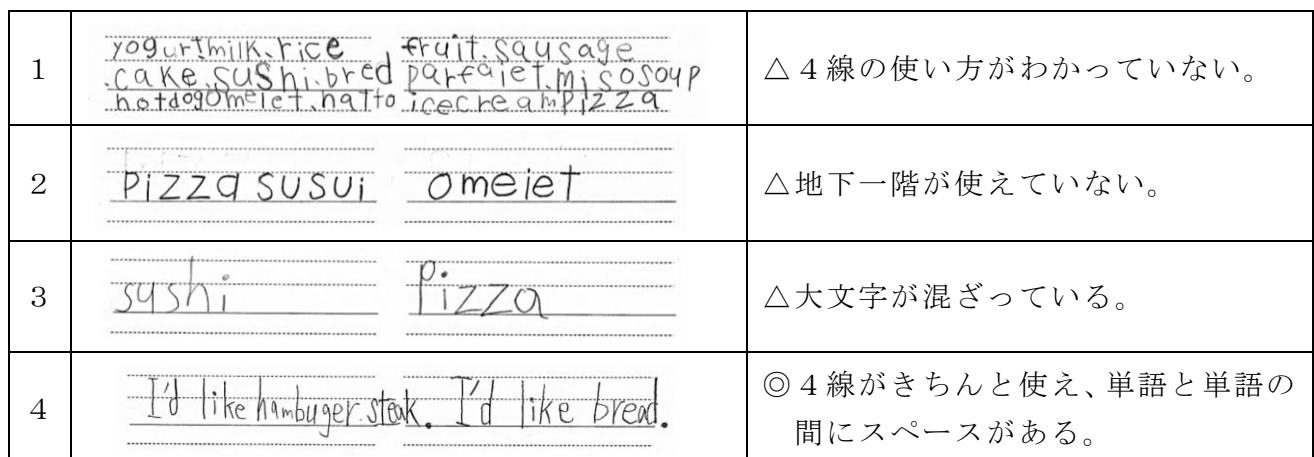 1
yogurt.milk.rice fruit.sausage
.cake.sushi.bred parfaiet.misosoup
hotdogomelet.natto icecreampizza
△４線の使い方がわかっていない。
2
pizza susui omelet
△地下一階が使えていない。
3
sushi pizza
△大文字が混ざっている。
4
I'd like hambuger.steak. I'd like bread.
◎４線がきちんと使え、単語と単語の
間にスペースがある。